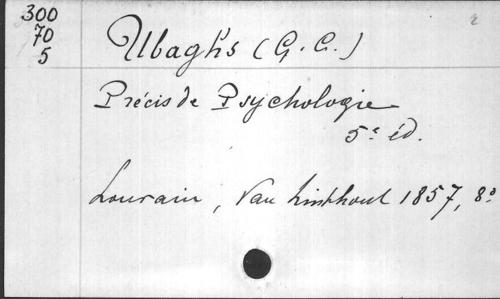 300
70
5
Ubaghs (G. C.)
Précis de Psychologie
5e éd.
Louvain, Van Linthout 1857, 8o